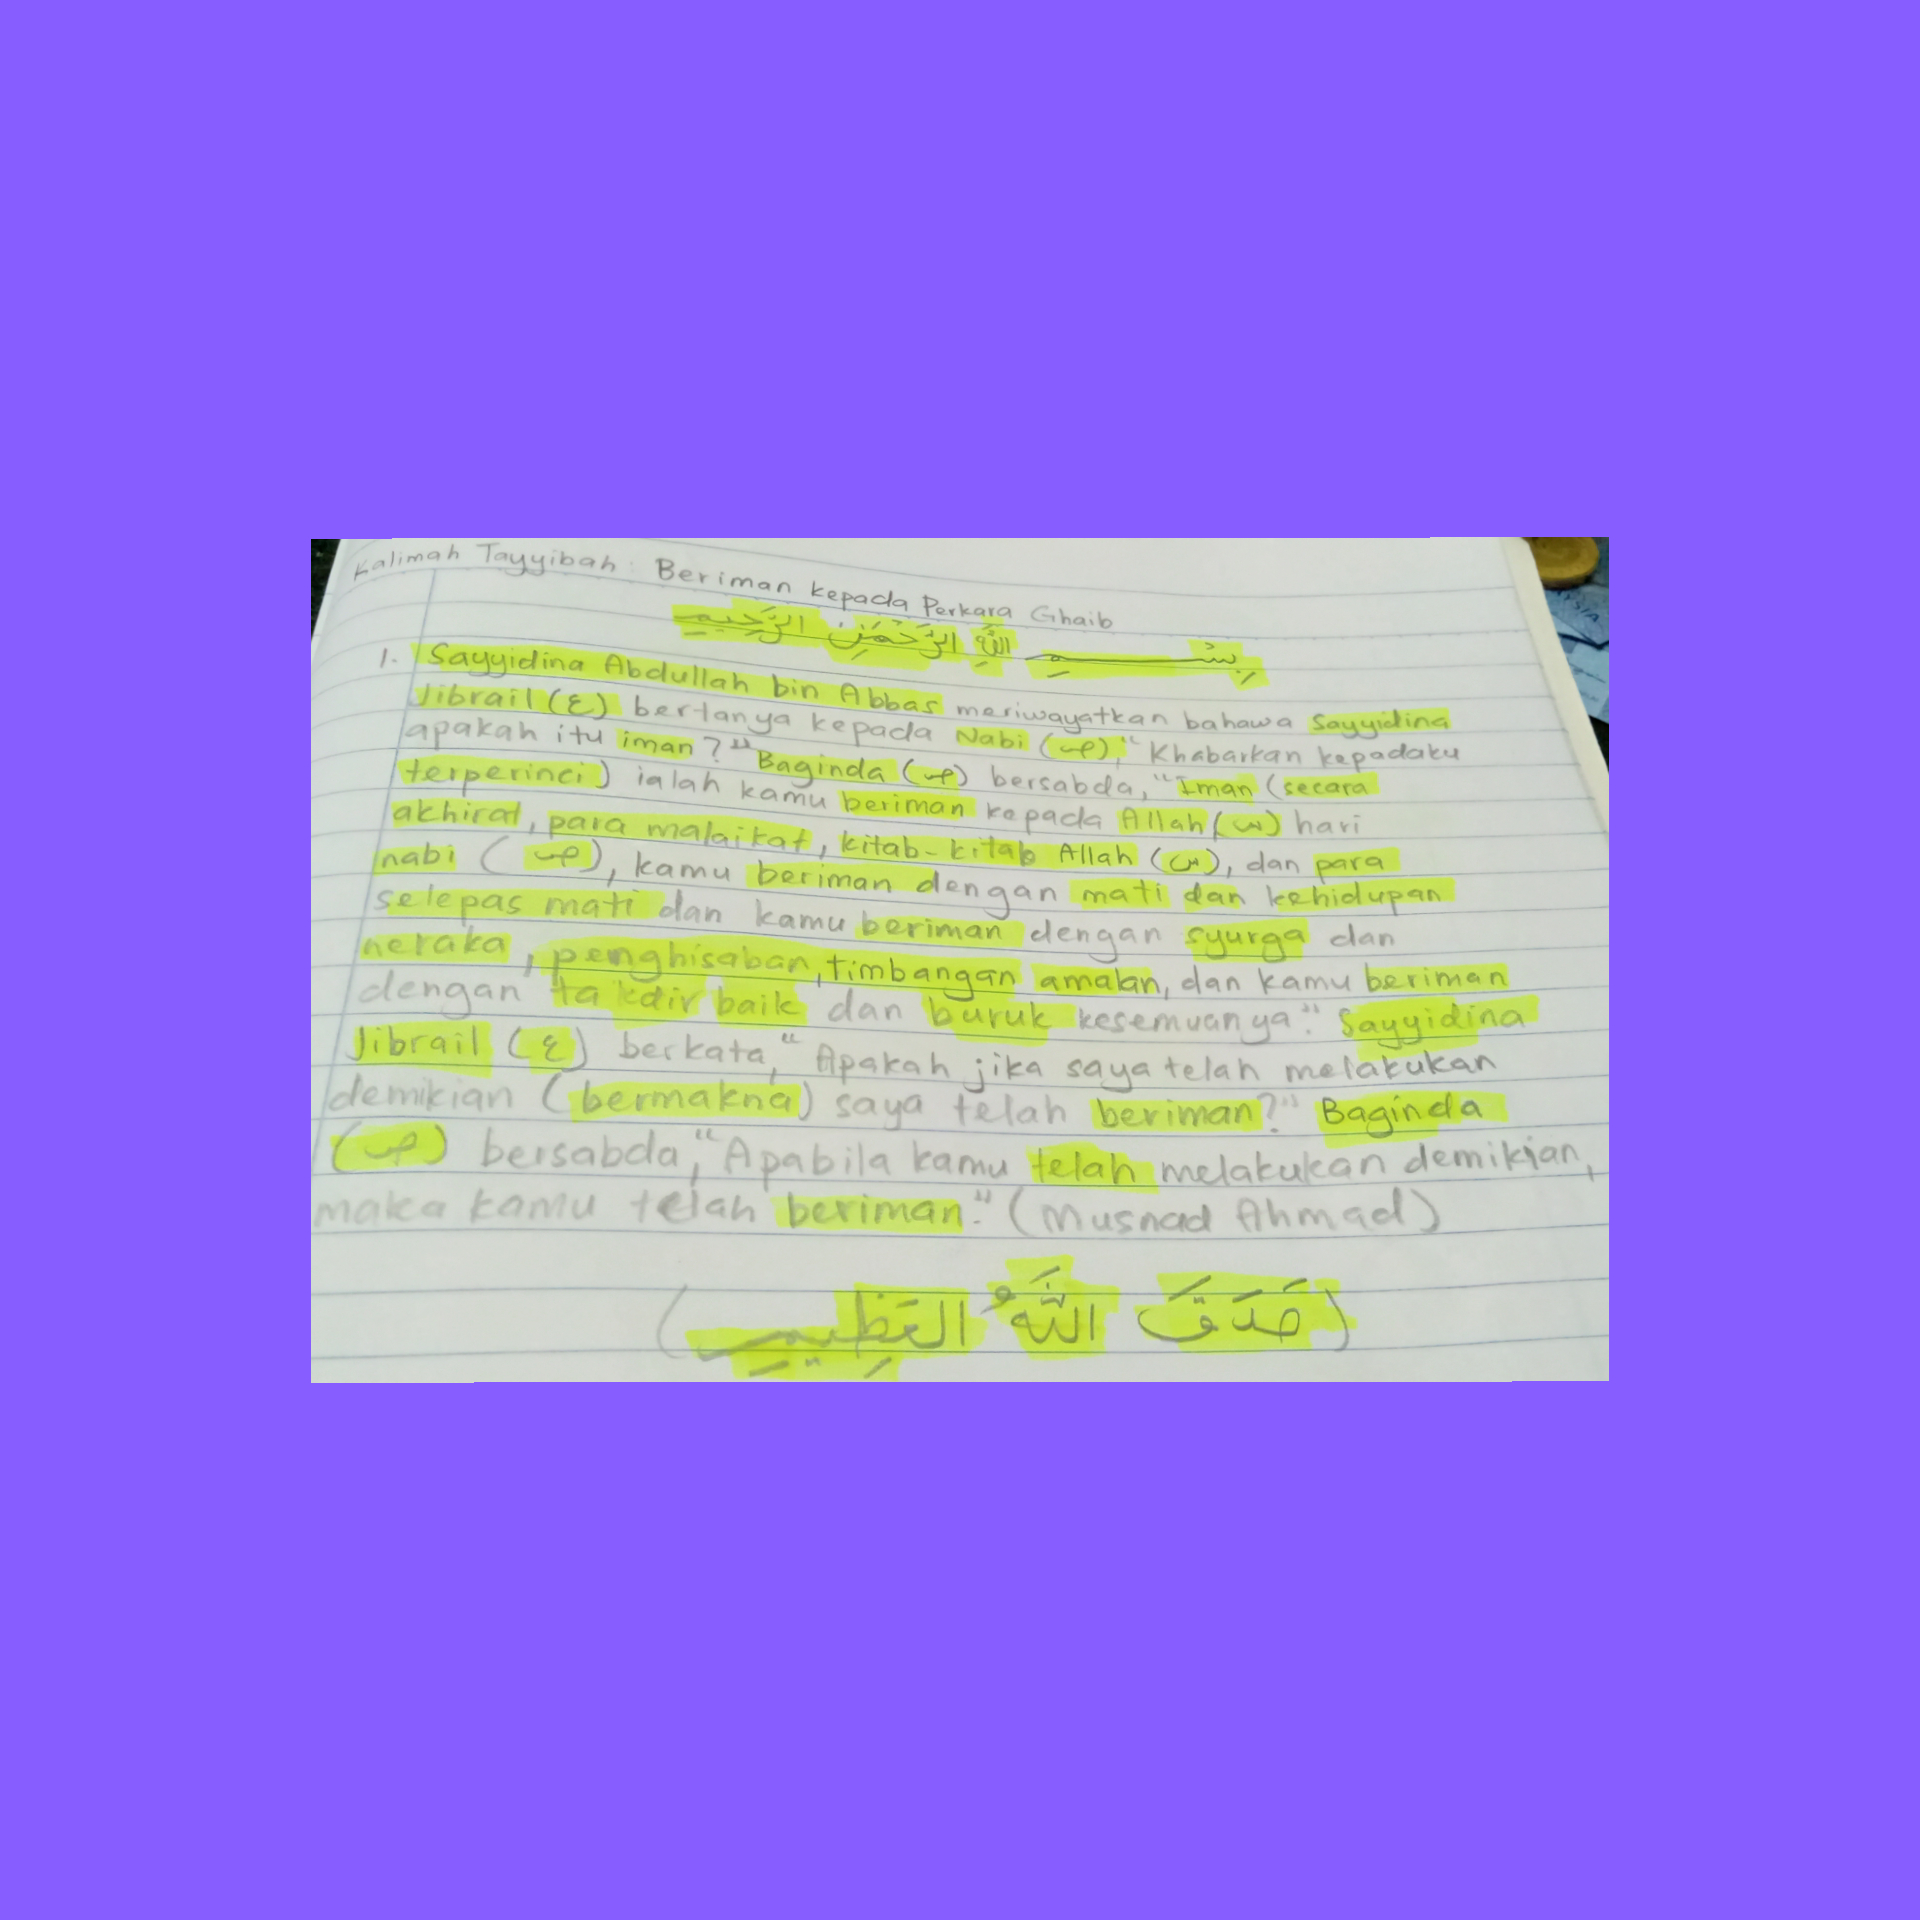 Kalimah Tayyibah : Beriman kepada Perkara Ghaib
بِسْــــــمِ اللَّهِ الرَّحْمَٰنِ الرَّحِيمِ
1. Sayyidina Abdullah bin Abbas meriwayatkan bahawa Sayyidina
Jibrail (ع) bertanya kepada Nabi (ص), "Khabarkan kepadaku
apakah itu iman?" Baginda (ص) bersabda, "Iman (secara
terperinci) ialah kamu beriman kepada Allah (س) hari
akhirat, para malaikat, kitab-kitab Allah (س), dan para
nabi (ص), kamu beriman dengan mati dan kehidupan
selepas mati dan kamu beriman dengan syurga dan
neraka, penghisaban, timbangan amalan, dan kamu beriman
dengan takdir baik dan buruk kesemuanya". Sayyidina
Jibrail (ع) berkata, "Apakah jika saya telah melakukan
demikian (bermakna) saya telah beriman?" Baginda
(ص) bersabda, "Apabila kamu telah melakukan demikian,
maka kamu telah beriman." (Musnad Ahmad)
(صَدَقَ اللَّهُ العَظِيمِ)